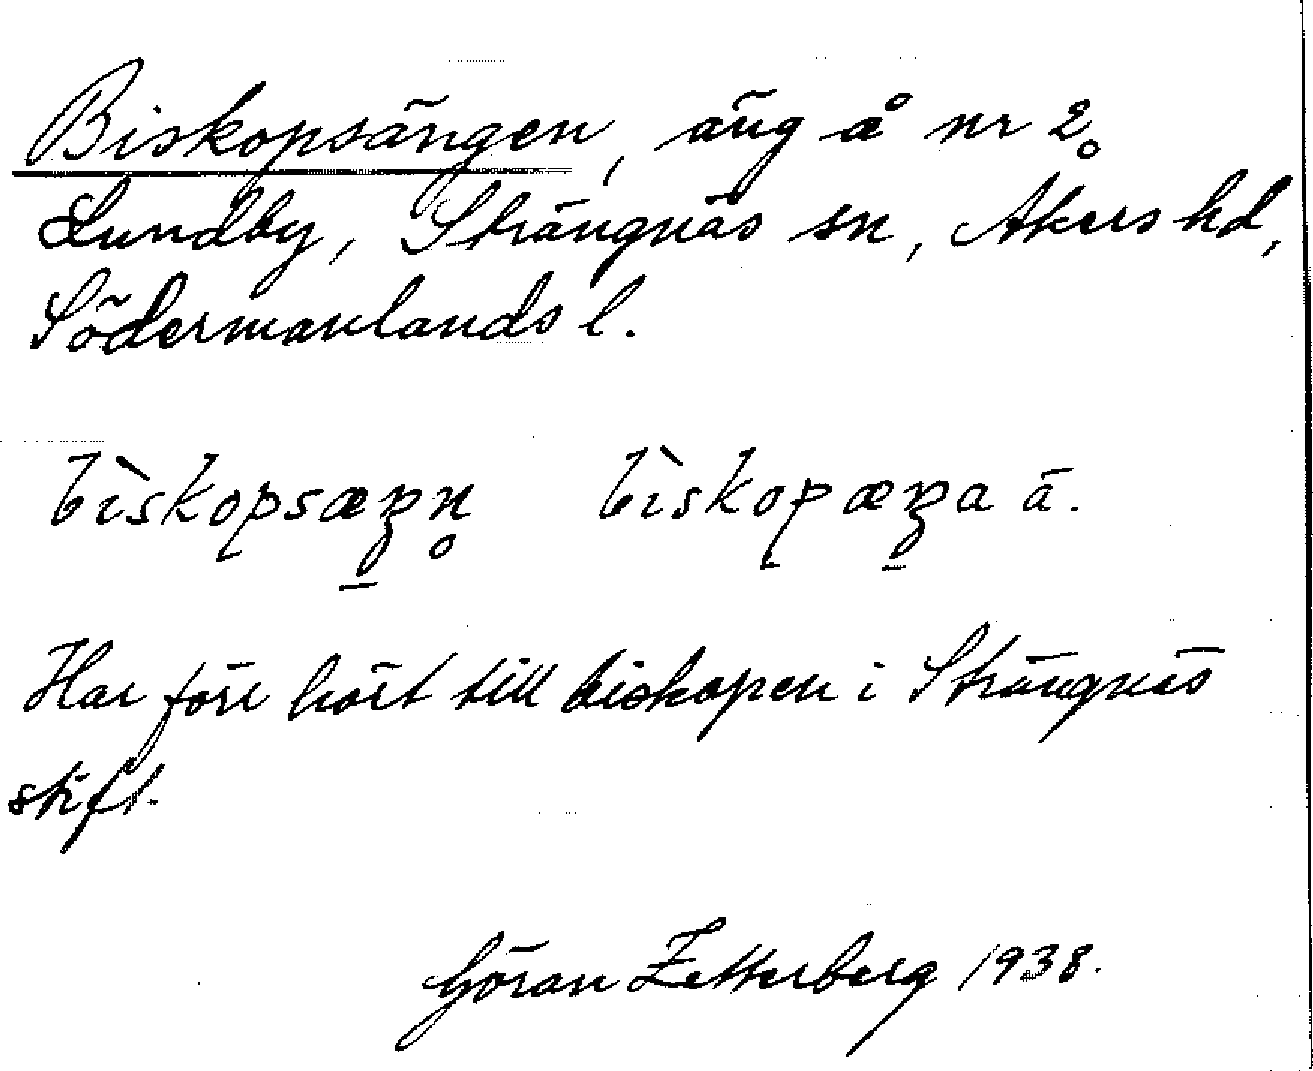 Biskopsängen, äng å nr 2
Lundby, Strängnäs sn, Åkers hd,
Södermanlands l.
bìskopsæŋn̥ bìskopæŋa ä.
Har förr hört till biskopen i Strängnäs
stift.
Göran Zetterberg 1938.